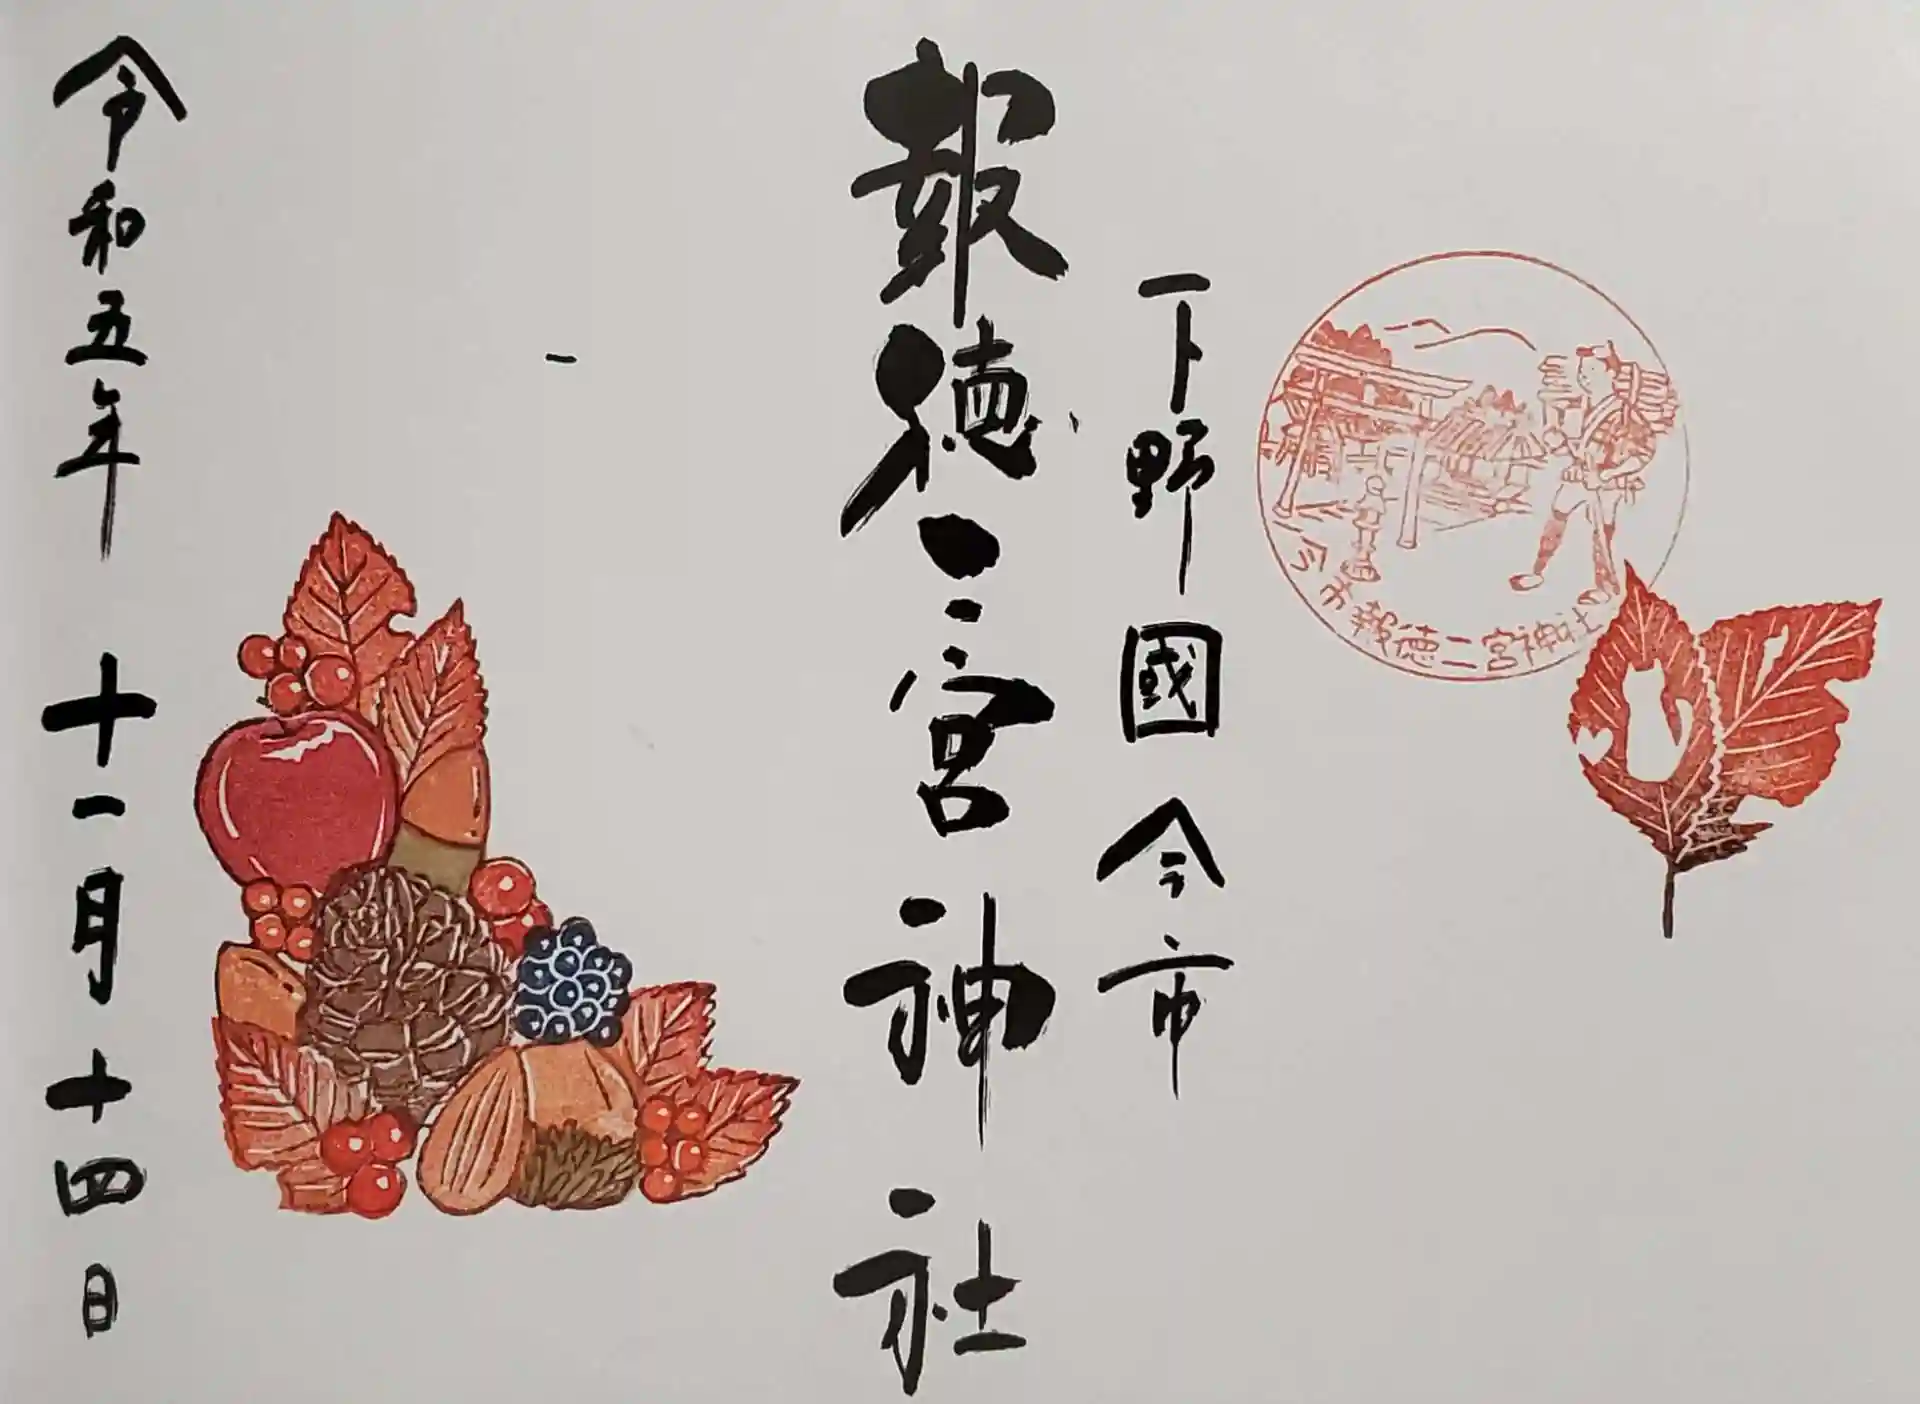 今市報徳二宮神社
下野國今市
報徳二宮神社
令和五年十一月十四日